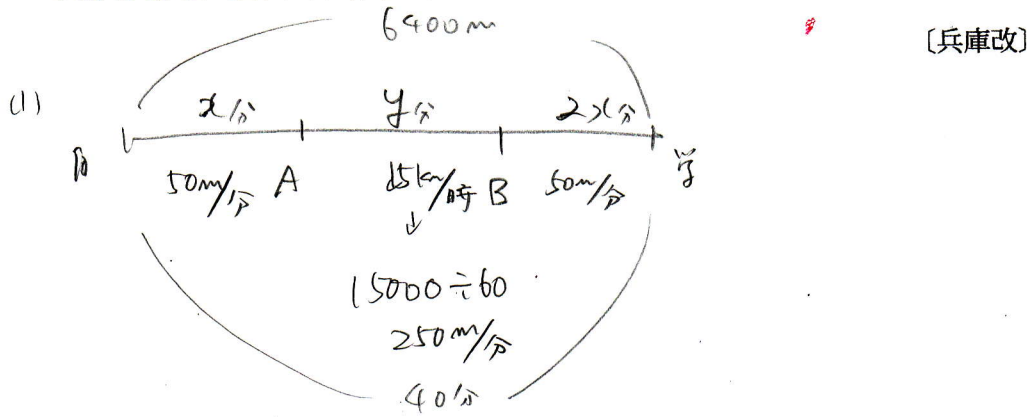 6400m
〔兵庫改〕
(1)
x分 y分 2x分
50m/分 A 15km/時 B 50m/分 学
↓
15000÷60
250m/分
40分